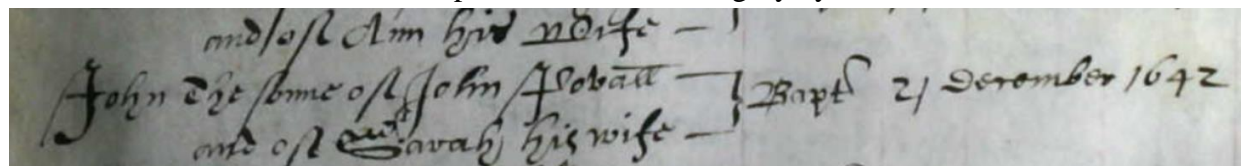 and of Ann his wife
John The sonne of John Povall Bapt 21 December 1642
and of Sarah his wife